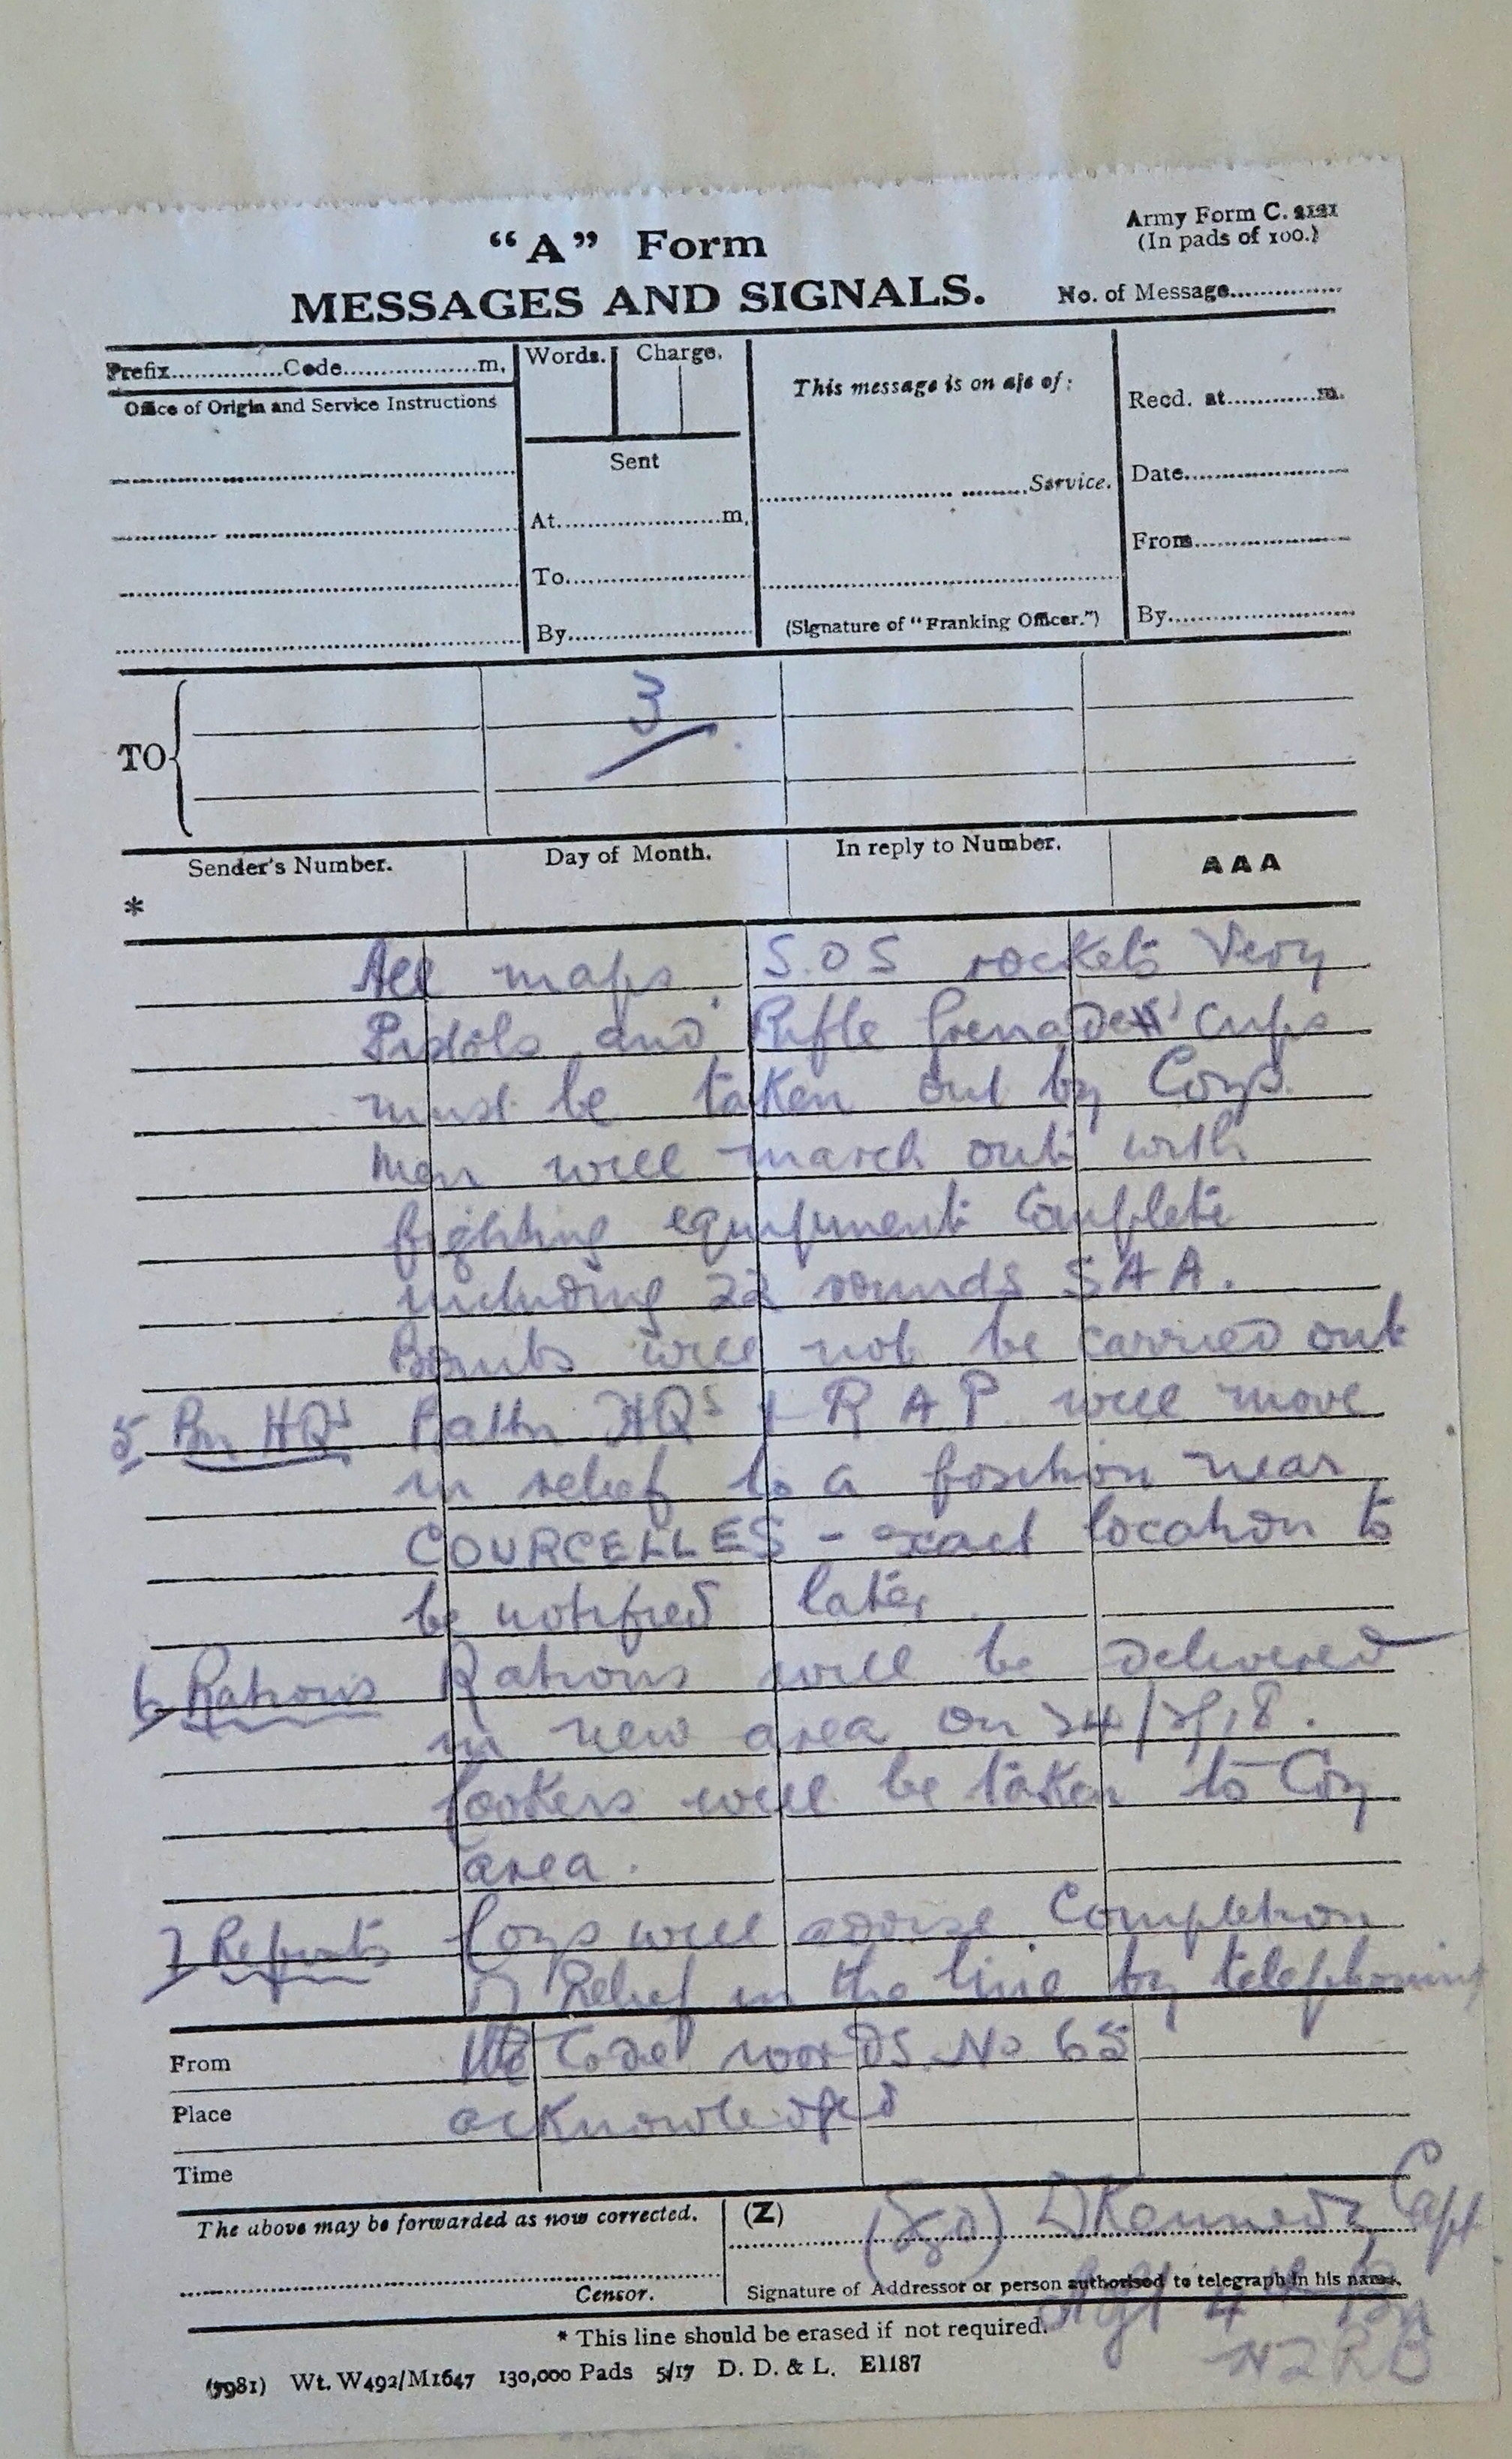 "A" Form
Army Form C. 2121
(In pads of 100.)
MESSAGES AND SIGNALS.
No. of Message...............
Prefix...............Code...................m.
Words.
Charge.
This message is on a/c of:
Recd. at.............m.
Office of Origin and Service Instructions
Sent
.........Service.
Date.....................
At.......................m.
From.....................
To.......................
By.......................
(Signature of "Franking Officer.")
By.......................
TO
3
Sender's Number.
Day of Month.
In reply to Number.
AAA
*
All maps, S.O.S rockets Very
Pistols and Rifle Grenade cups
must be taken out by Coys.
Men will march out with
fighting equipment complete
including 22 rounds SAA.
Bombs will not be carried out
5 Bn HQs Battn HQs + RAP will move
in relief to a position near
COURCELLES - exact location to
be notified later.
6 Rations Rations will be delivered
in new area on 24/ /18.
Cookers will be taken to Coy
area.
7 Reports Coys will advise Completion
of Relief in the line by telephoning
the Code words No 65
acknowledged
From
Place
Time
The above may be forwarded as now corrected.
(Z)
(Sgd) Kennedy Capt
Censor.
Signature of Addressor or person authorised to telegraph in his name.
Adjt 4th Bn
* This line should be erased if not required.
NZRB
(7981) Wt. W492/M1647 130,000 Pads 5/17 D. D. & L. E1187